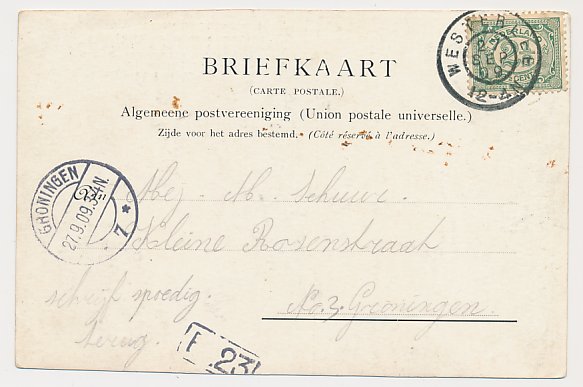 BRIEFKAART
(CARTE POSTALE.)
Algemeene postvereeniging (Union postale universelle.)
Zijde voor het adres bestemd. (Côté réservé à l'adresse.)
NEDERLAND
CENT
WESTER
SEP
09
12-
GRONINGEN
27.9.09. 3-4N.
7 *
Aan
Mej. M. Schuur
Kleine Rozenstraat
No. 3. Groningen.
schrijf spoedig.
terug.
F 23